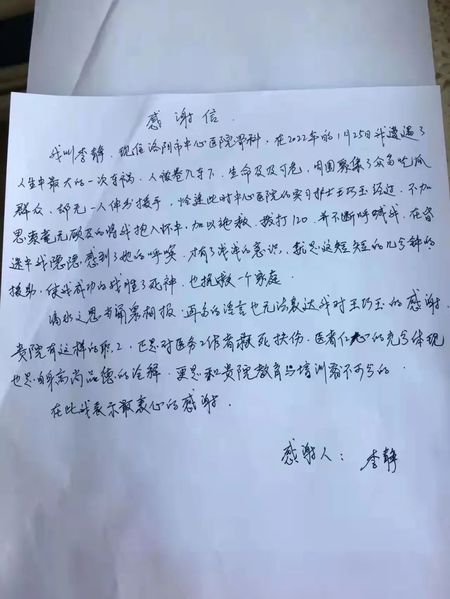 感谢信
我叫李静，现住洛阳市中心医院骨科，在2022年的1月25日我遭遇了
人生中最大的一次车祸，人被卷入车下，生命岌岌可危，周围聚集了众多吃瓜
群众，却无一人伸出援手，恰逢此时中心医院的实习护士王巧玉经过，不加
思索毫无顾及的将我抱入怀中，加以施救，拨打120，并不断呼喊我，在昏
迷中我隐隐感到了她的呼唤，才有了浅浅的意识，就是这短短的几分钟的
援助，使我成功的战胜了死神，也拯救一个家庭。
滴水之恩当涌泉相报，再多的语言也无法表达我对王巧玉的感谢。
贵院有这样的职工，正是对医务工作者救死扶伤，医者仁心的充分体现
也是自身高尚品德的诠释，更是和贵院教育与培训密不可分的
在此我表示最衷心的感谢．
感谢人：李静